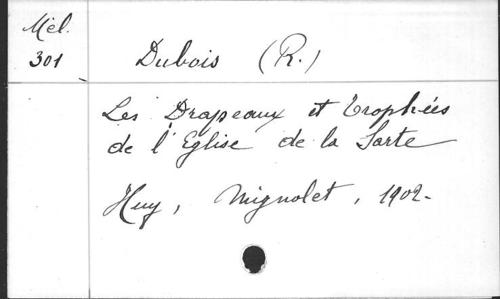 Mél.
301
Dubois (R.)
Les Drapeaux et Trophées
de l'Eglise de la Sarte
Huy, Mignolet, 1902.